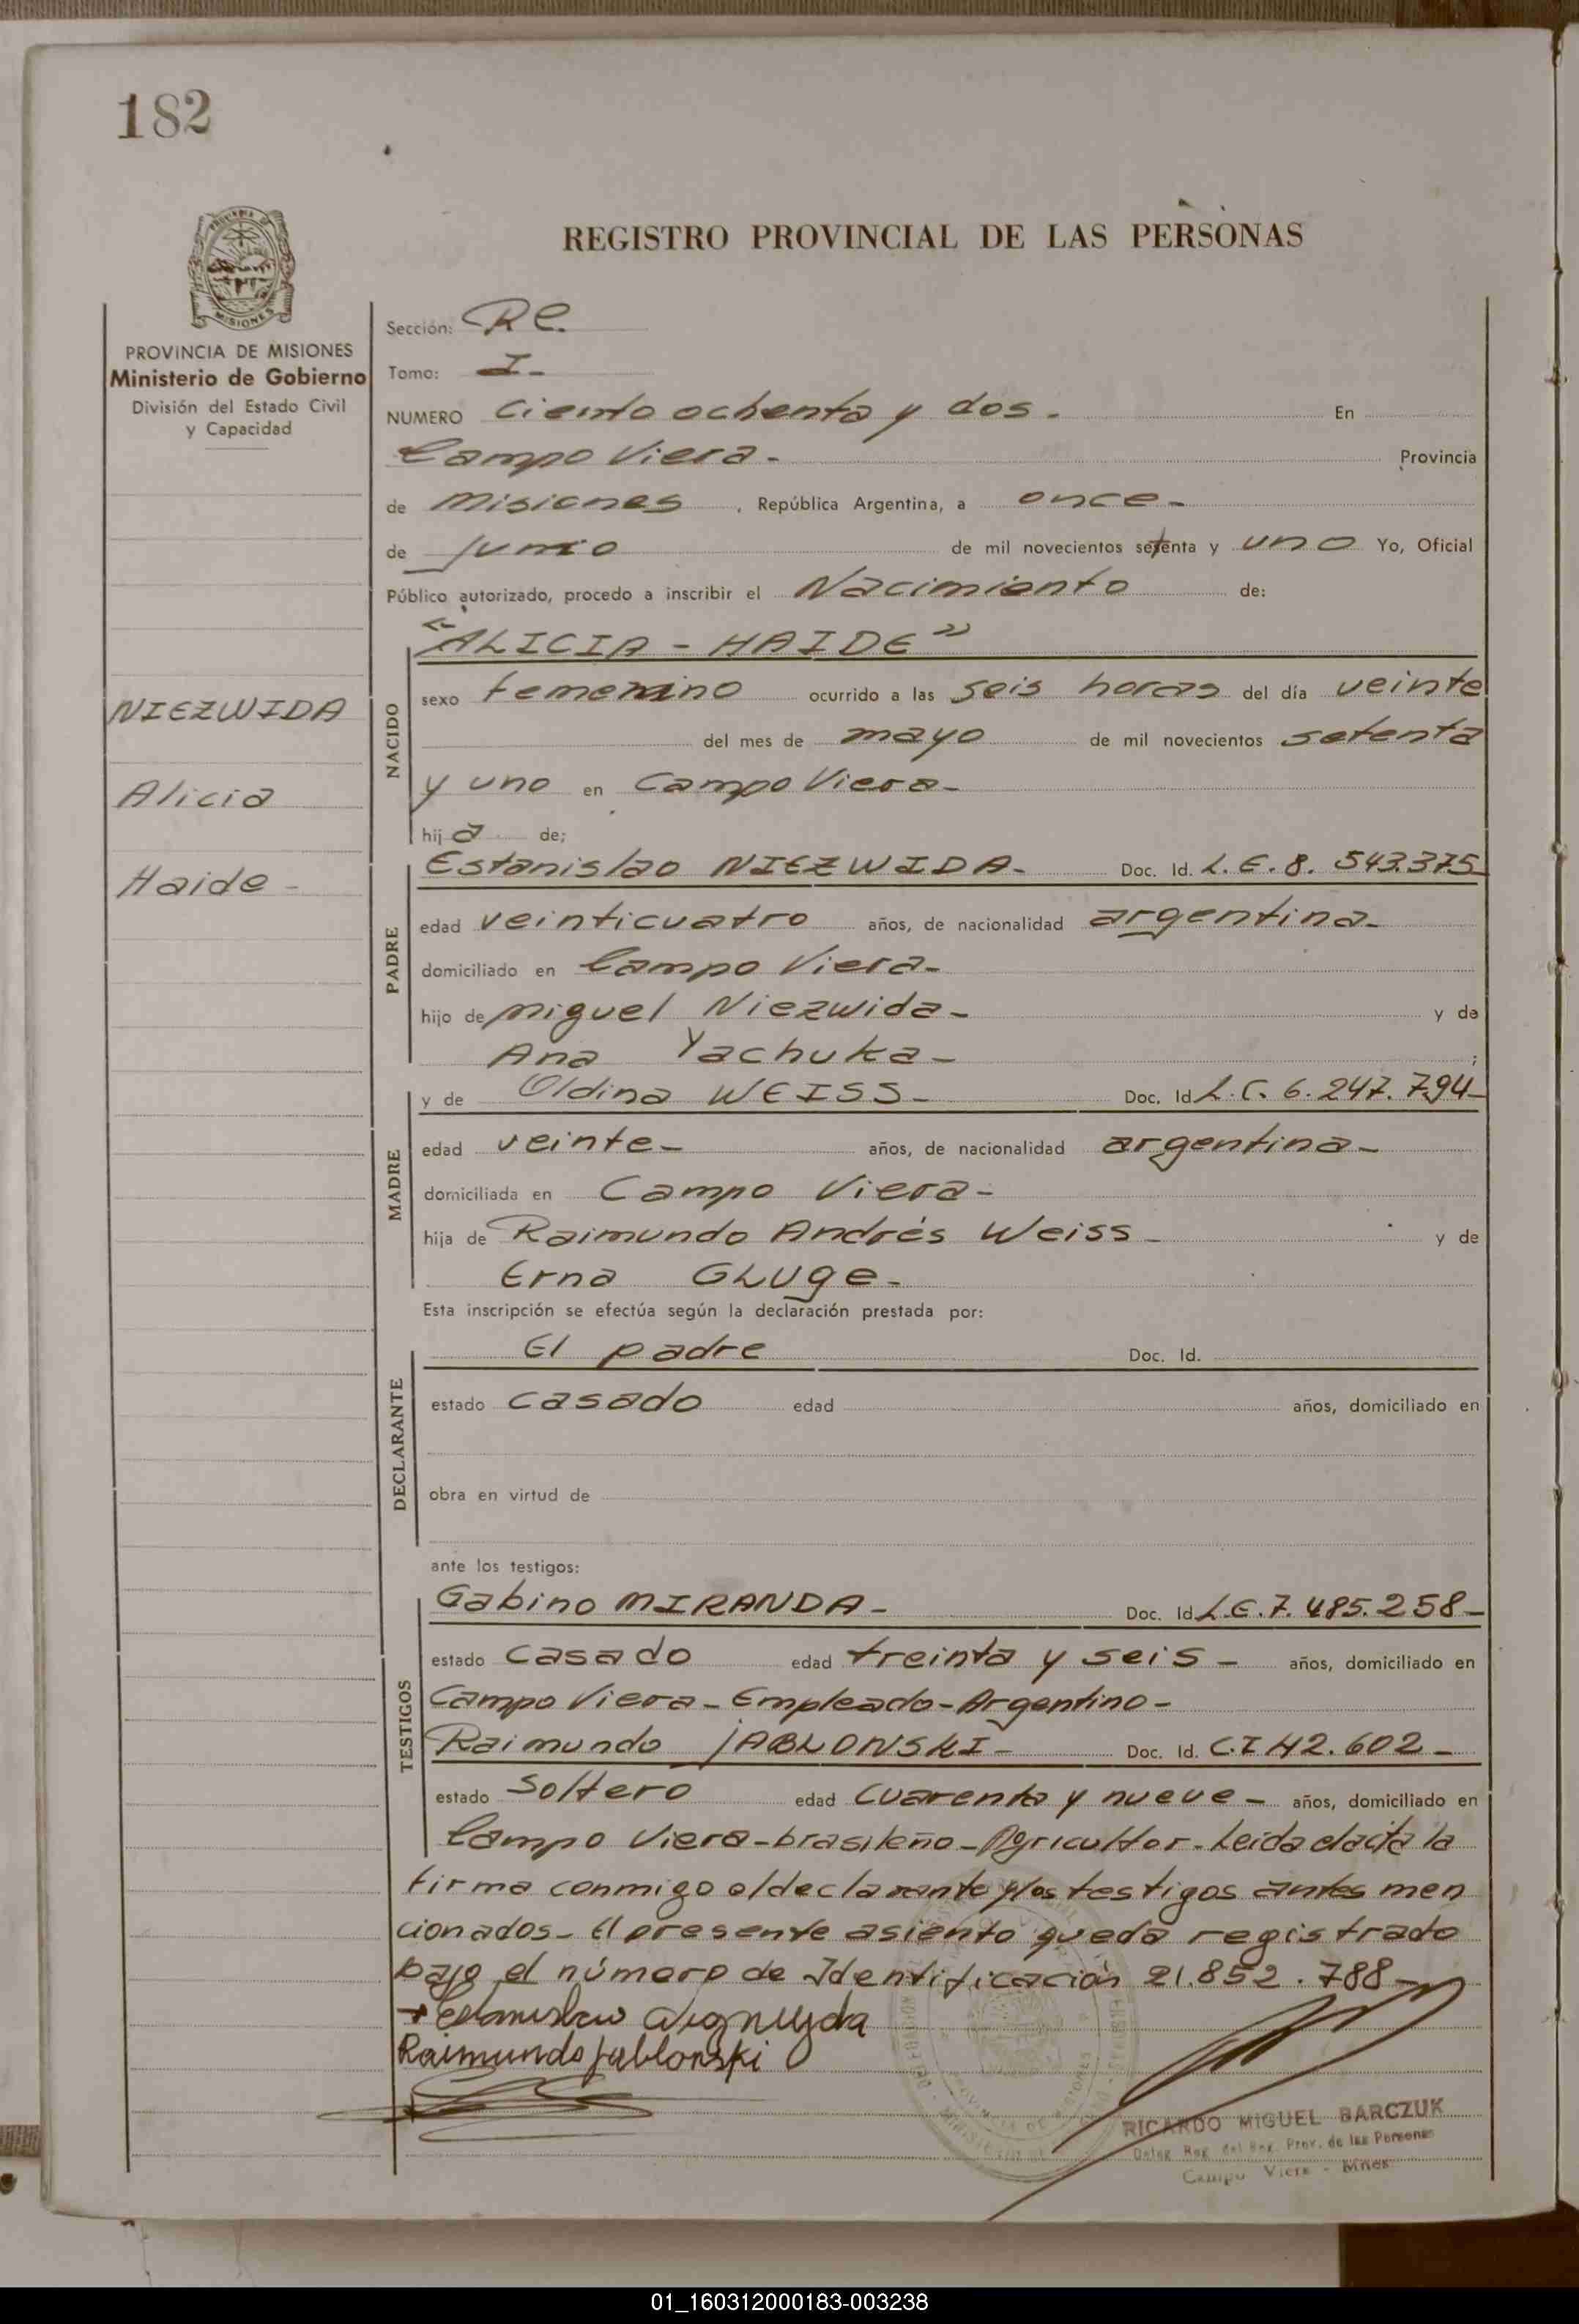 182
REGISTRO PROVINCIAL DE LAS PERSONAS
MISIONES
PROVINCIA DE MISIONES
Ministerio de Gobierno
División del Estado Civil
y Capacidad
NIEZWIDA
Alicia
Haide -
Sección: RC.
Tomo: I-
NUMERO Ciento ochenta y dos - En
Campo Viera - Provincia
de Misiones , República Argentina, a once -
de junio de mil novecientos setenta y uno Yo, Oficial
Público autorizado, procedo a inscribir el Nacimiento de:
"ALICIA - HAIDE"
NACIDO
sexo femenino ocurrido a las seis horas del día veinte
del mes de mayo de mil novecientos setenta
y uno en Campo Viera -
hija de;
PADRE
Estanislao NIEZWIDA - Doc. Id. L.E. 8. 543.375
edad veinticuatro años, de nacionalidad argentina -
domiciliado en Campo Viera -
hijo de Miguel Niezwida - y de
Ana Yachuka - ;
MADRE
y de Oldina WEISS - Doc. Id L.C. 6. 247. 794 -
edad veinte - años, de nacionalidad argentina -
domiciliada en Campo Viera -
hija de Raimundo Andrés Weiss - y de
Erna GLUge -
Esta inscripción se efectúa según la declaración prestada por:
DECLARANTE
El padre Doc. Id.
estado casado edad años, domiciliado en
obra en virtud de
ante los testigos:
TESTIGOS
Gabino MIRANDA - Doc. Id L.E. 7. 485. 258 -
estado casado edad treinta y seis - años, domiciliado en
Campo Viera - Empleado - Argentino -
Raimundo JABLONSKI - Doc. Id. C.I 42. 602 -
estado Soltero edad cuarenta y nueve - años, domiciliado en
Campo Viera - brasileño - Agricultor - Leida el acta la
firma conmigo el declarante y los testigos antes men
cionados - El presente asiento queda registrado
bajo el número de Identificación 21.852.788 -
Raimundo Jablonski
RICARDO MIGUEL BARCZUK
Deleg. Reg. del Reg. Prov. de las Personas
Campo Viera - Mnes
01_160312000183-003238